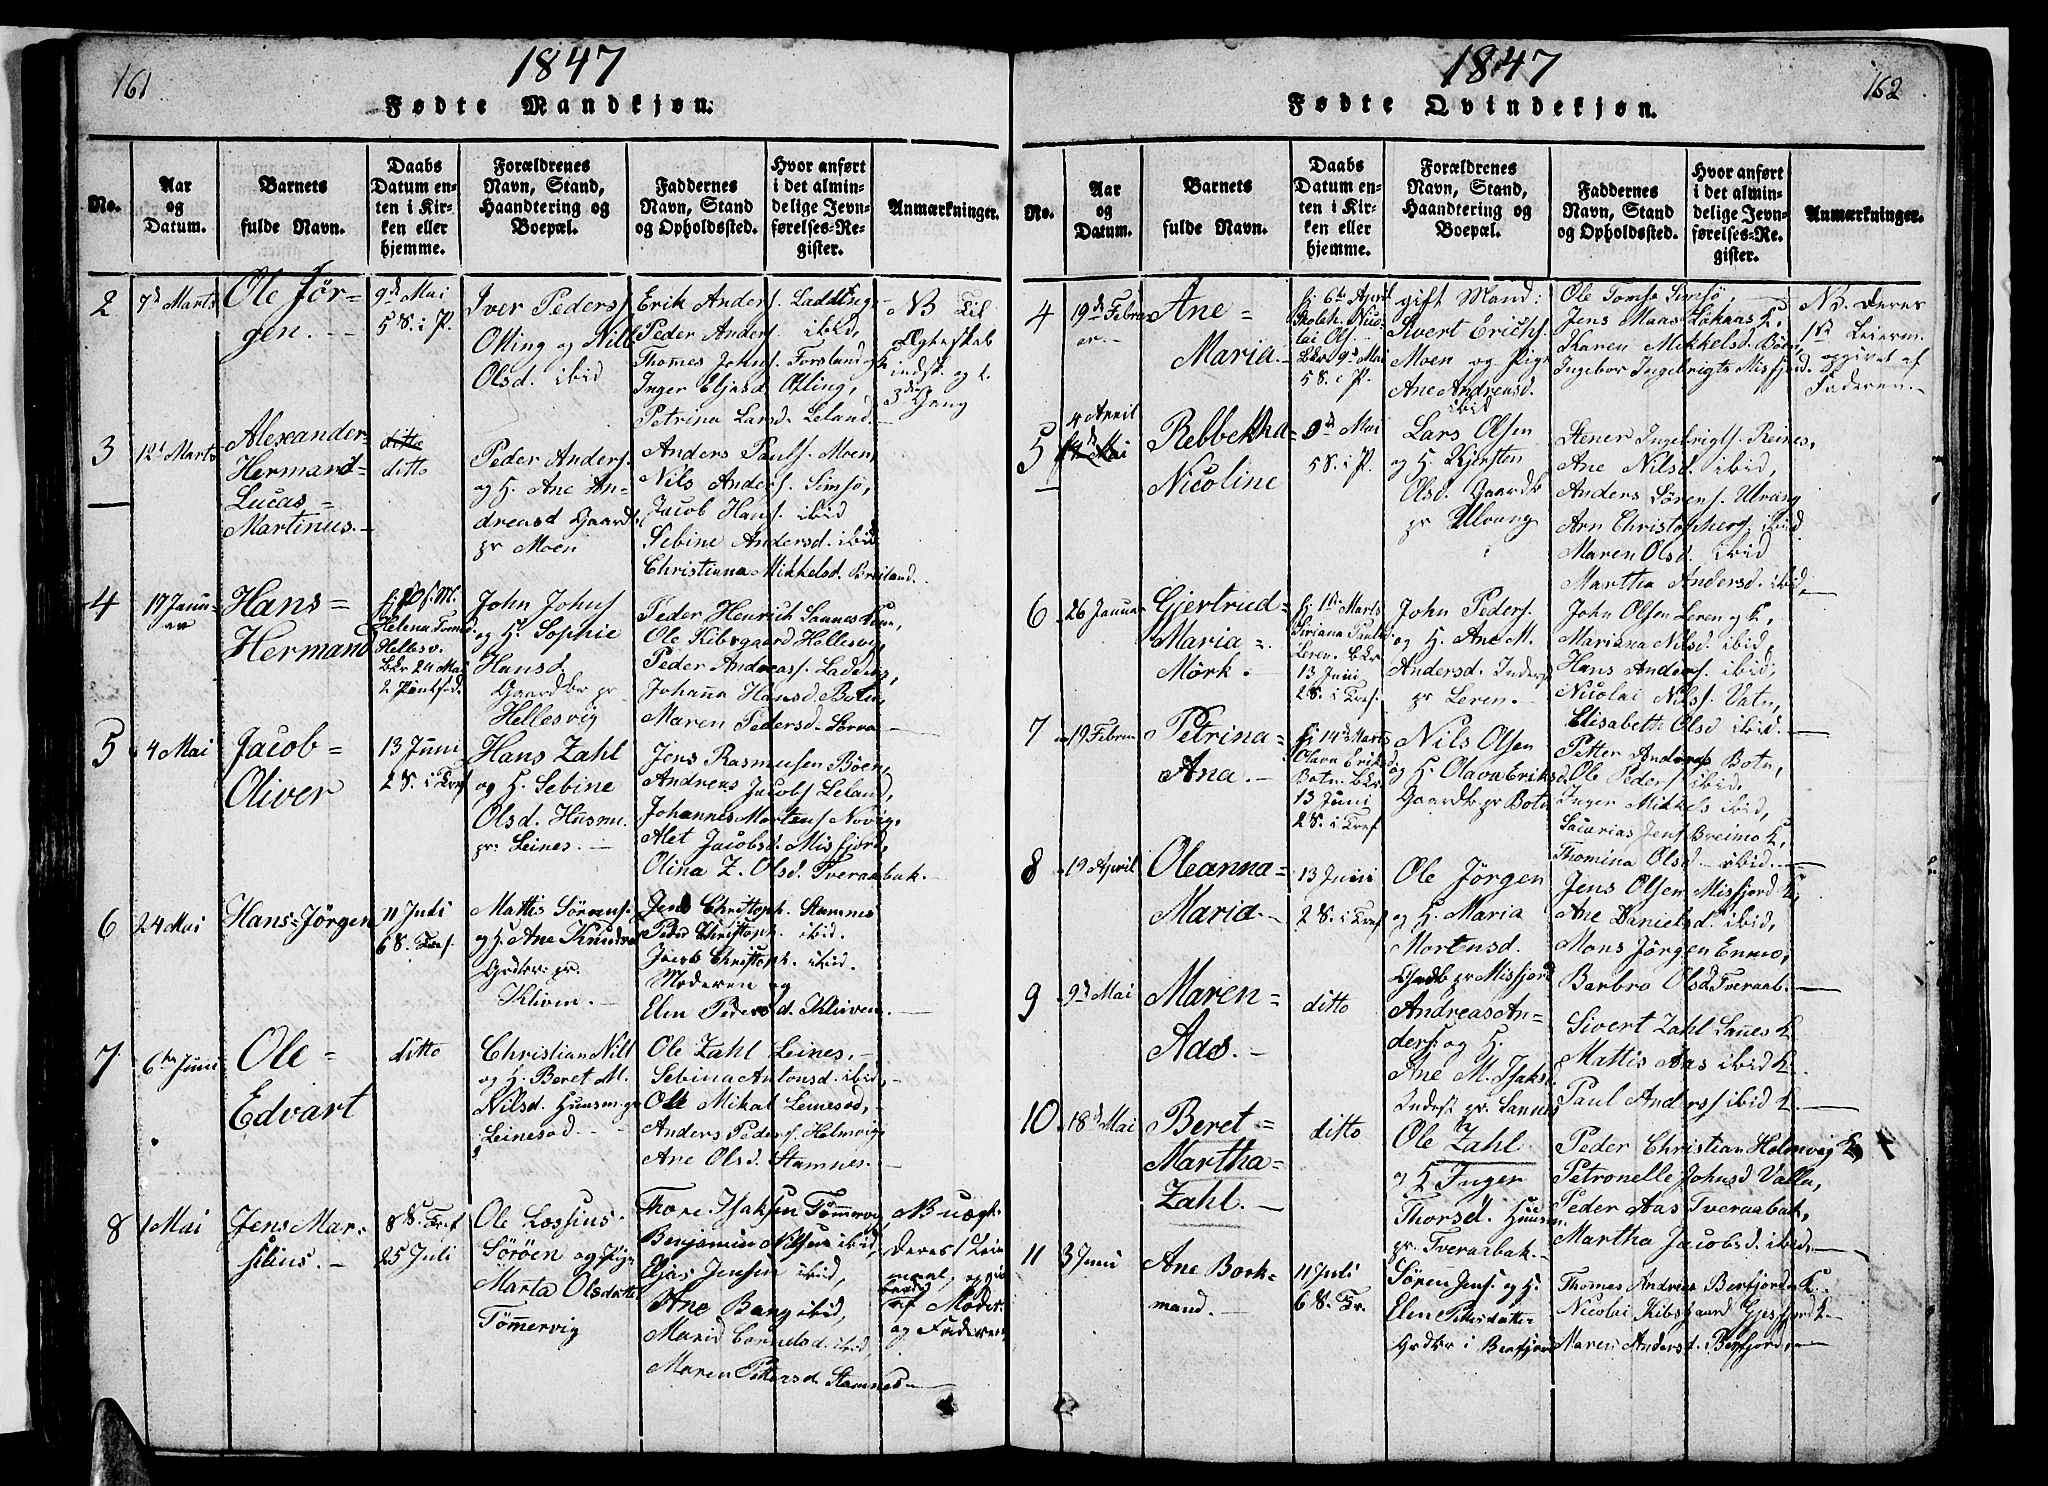 161
1847
Fødte Mandkjøn.
No.
Aar
og
Datum.
Barnets
fulde Navn.
Daabs
Datum en-
ten i Kir-
ken eller
hjemme.
Forældrenes
Navn, Stand,
Haandtering og
Boepæl.
Faddernes
Navn, Stand
og Opholdssted.
Hvor anført
i det almin-
delige Jevn-
førelses-Re-
gister.
Anmærkninger.
2
7d Marts
Ole Jør-
gen.
9d Mai
5 S. i P.
Iver Peders
Olting og
Olsd. ibid
Erik Anders. Ladding
Peder Anders. ibid,
Thomes Johns. Forsland
Inger Eljasd Olting,
Petrina Larsd. Leland.
NB Til
Ægteskab
indst. og
3die Gang
3
12t Marts
Alexander-
Hermand-
Lucas-
Martinus.
ditto
ditto
Peder Anders.
og H. Ane An-
dreasd Gaardb
pr Moen
Anders Pauls. Moen,
Nils Anders. Simsø,
Jacob Hans. ibid
Sebine Andersd. ibid
Christiana Mikkelsd. Breiland.
4
17 Janu-
ar
Hans-
Hermand
Helena Tomsd
Hellesv.
Bkr 24 Mai
2 Pintsed.
John Johns
og H. Sophie
Hansd
Gaardbr pr
Hellesvig
Peder Henrich Sannes
Ole Kibsgaard Hellesvig
Peder Andreas. Lading
Johanna Hansd Botn,
Maren Pedersd. Sorva
5
4 Mai
Jacob-
Oliver
13 Juni
2 S. i Tref
Hans Zahl
og H. Sebine
Olsd. Husm.
pr. Leines.
Jens Rasmusen Böen,
Andreas Jacobs Leland,
Johannes Mortens Novig,
Alet Jacobsd. Misfjord,
Olina Z. Olsd. Tveraabak.
6
24 Mai
Hans-Jörgen
11 Juli
6 S. Tref.
Mattis Sörens.
og H. Ane Knudsd
Grdbr. pr.
Kliven.
Jens Christoph. Stamnes
Peder Christoph. ibid.
Jacob Christoph. ibid.
Moderen og
Elen Pedersd. Kliven.
7
6te Juni
Ole-
Edvart
ditto
Christian Nils
og H. Beret M.
Nilsd. Huusm.
Leinesod.
Ole Zahl Leines.
Sebina Antonsd. ibid,
Ole Mikal Leinesod,
Anders Peders. Holmvig
Ane Olsd. Stamnes.
8
1 Mai
Jens Mar-
silius.
8 S. Tref
25 Juli
Ole Lossius
Söröen og Pige
Marta Olsdatter
Tömmervig
Thore Isaksen Tömmervig
Benjamin Nilsen ibid,
Eljas Jensen ibid,
Ane Bang ibid,
Marid Cornelsd. ibid,
Maren Pettersd. Stamnes
NB uægte
deres 1 Leier-
maal, opgivet
af Moder
og Faderen
162
1847
Fødte Qvindekjøn.
No.
Aar
og
Datum.
Barnets
fulde Navn.
Daabs
Datum en-
ten i Kir-
ken eller
hjemme.
Forældrenes
Navn, Stand,
Haandtering og
Boepæl.
Faddernes
Navn, Stand
og Opholdssted.
Hvor anført
i det almin-
delige Jevn-
førelses-Re-
gister.
Anmærkninger.
4
19d Febru-
ar.
Ane-
Maria
hj 6te April
lai Ols.
Bkr 9d Mai
5 S. i P.
gift Mand:
Sivert Erichs.
Moen og Pige
Ane Andreasd.
ibid
Ole Tomsø Simsö,
Jens Maas
Karen Mikkelsd. Böen,
Ingebor Ingebrigts Misfjord.
NB. deres
1st Leierm.
opgivet af
Faderen.
5
4 April
Rebbekka-
Nicoline
9d Mai
5 S. i P.
Lars Olsen
og H. Kjersten
Olsd. Gaardb
pr Ulvang
Stener Ingebrigts. Reines,
Ane Nilsd. ibid,
Anders Sörens. Ulvang
Arn Christophers. ibid
Maren Olsd. ibid
Martha Andersd. ibid,
6
26 Januar
Gjertrued-
Maria-
Mörk.
hj 1st Marts
Siriana Pauls
Leren. Bkr
13 Juni
2 S. i Tref.
John Peders.
og H. Ane M.
Andersd. Inderst
pr Leren.
John Olsen Leren og K,
Mariana Nilsd. ibid,
Hans Anders. ibid,
Nicolai Nils. Vatn,
Elisabeth Olsd ibid.
7
19 Febru
Petrina-
Ana.
hj 14d Marts
Olava Eriksd
Botn. Bkr
13 Juni
2 S. i Tref
Nils Olsen
og H. Olava Eriksd.
Gaardbr pr Botn
Petter Anders Botn,
Ole Peders ibid,
Inger Mikkels ibid,
Sacarias Jens Breimo K,
Thomina Olsd ibid.
8
19 April
Oleanna-
Maria.
13 Juni
2 S. i Tref
Ole Jörgen
og H. Maria
Mortensd.
Gaardb pr Misfjord
Jens Olsen Misfjord K,
Ane Danielsd. ibid,
Mons Jörgen Enmo,
Barbro Olsd Tveraab.
9
9d Mai
Maren-
Aas.
ditto
Andreas An-
ders. og H.
Ane M. Isaksd.
Inderst pr. Sannes
Sivert Zahl Sannes K
Mattis Aas ibid K
Paul Anders ibid K.
10
18d Mai
Beret-
Martha-
Zahl.
ditto
Ole Zahl
og H Inger
Thorsd. Huusm.
pr. Tveraabak.
Peder Christian Holmvig K
Petronelle Johnsd Valla,
Peder Aas Tveraabak,
Martha Jacobsd. ibid.
11
3 Juni
Ane Bork-
mand.
11 Juli
6 S. Tr.
Sören Jens. og H.
Elen Pettersdatter
Grdbr i Berfjord
Thomas Andreas Berfjord K.
Nicolai Kibsgaard Gjesfjord K
Maren Andersd. Berfjord